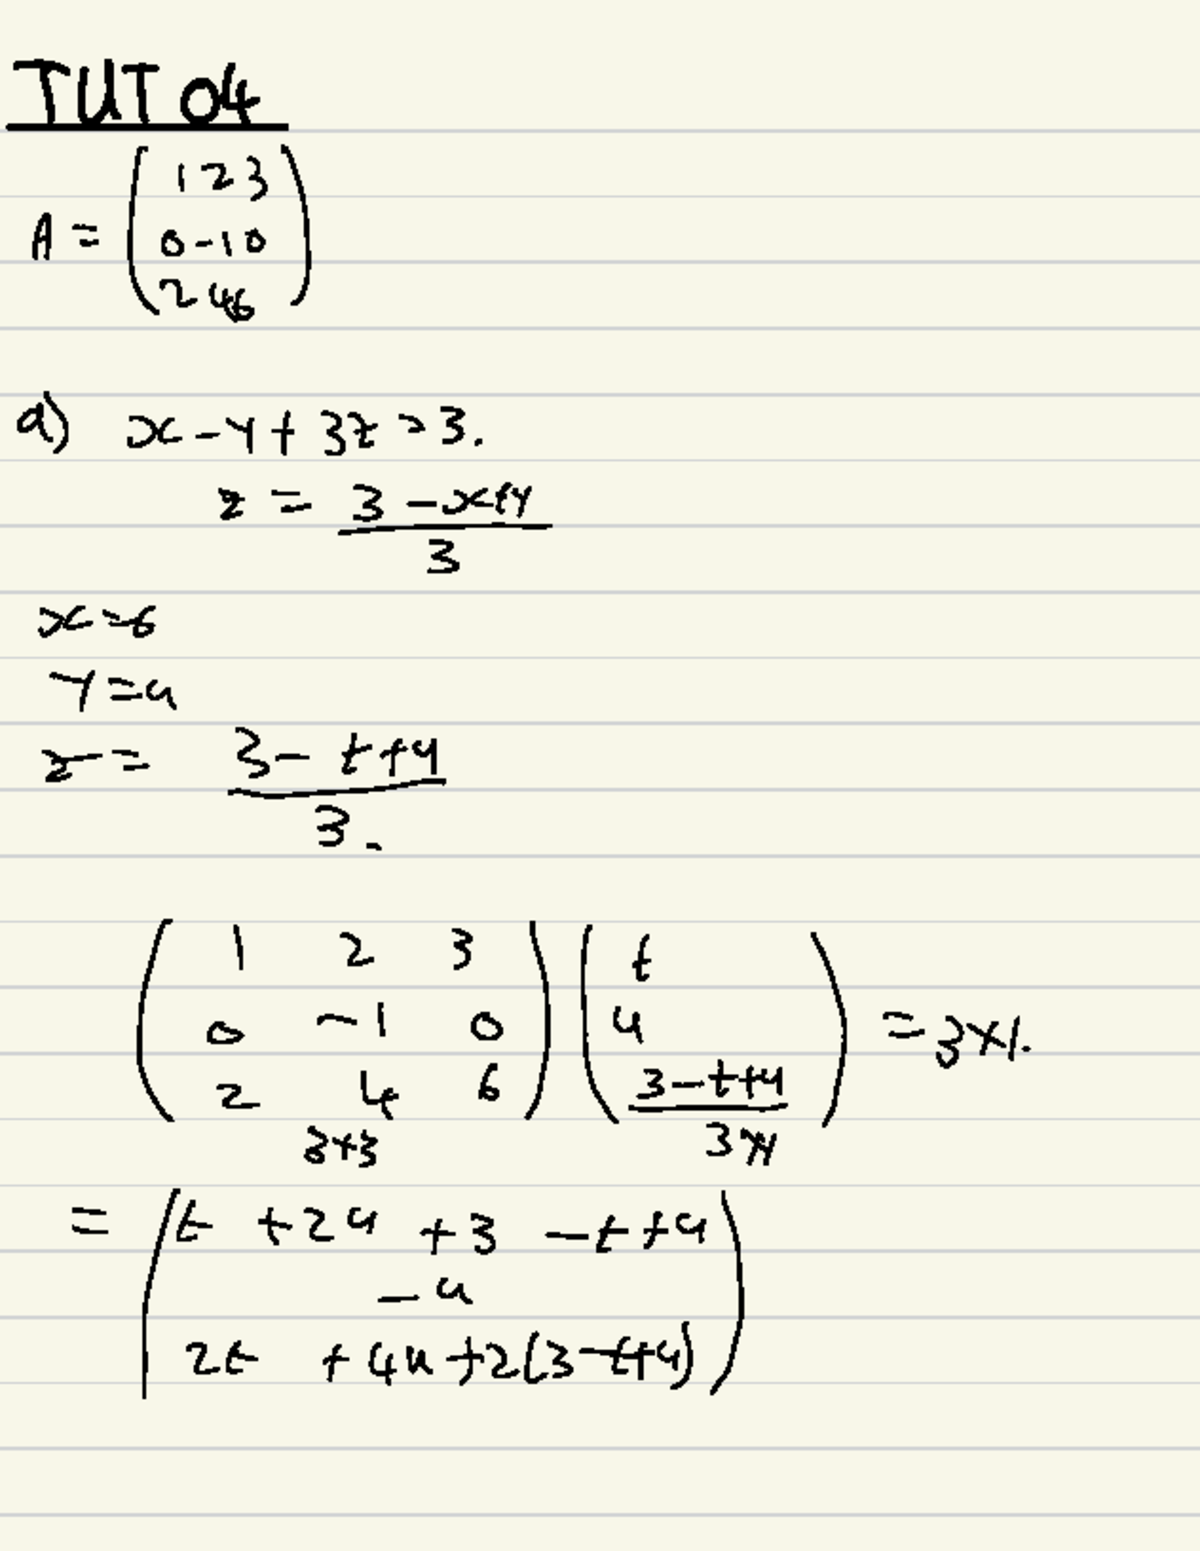 TUT 04
A = ( 1 2 3
0 -1 0
2 4 6 )
a) x - y + 3z = 3.
z = 3 - x + y / 3
x = t
y = u
z = 3 - t + u / 3.
( 1 2 3 ) ( t )
( 0 -1 0 ) ( u ) = 3×1.
( 2 4 6 ) ( 3 - t + u / 3 )
3×3 ×1
= ( t + 2u + 3 - t + u
- u
2t + 4u + 2(3 - t + u) )